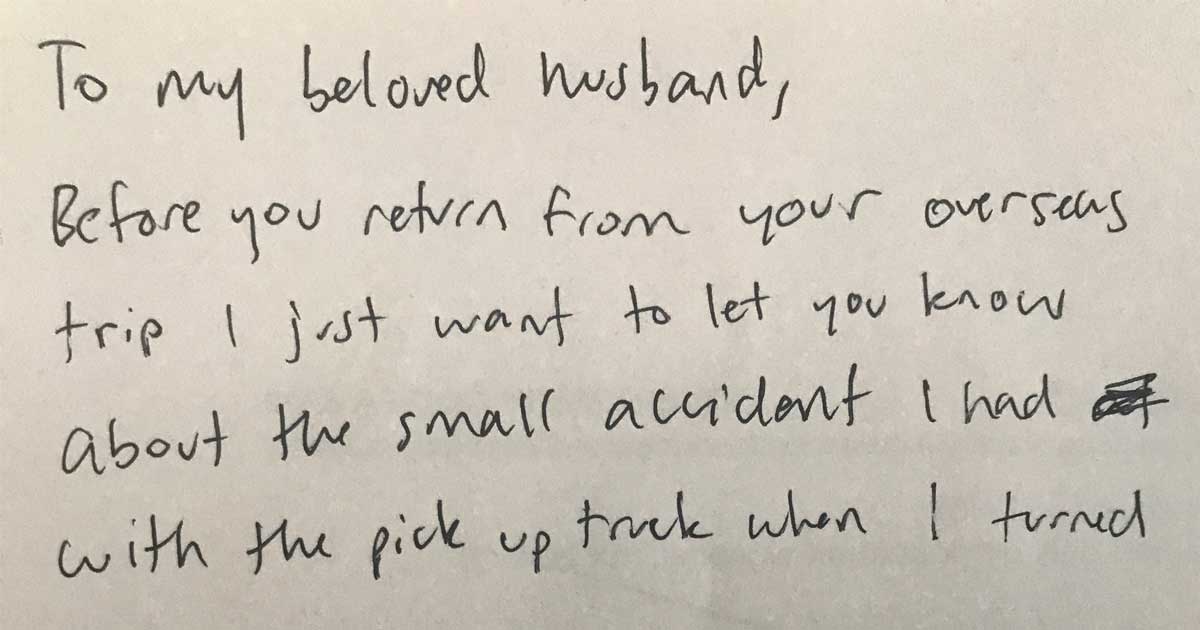 To my beloved husband,
Before you return from your overseas
trip I just want to let you know
about the small accident I had
with the pick up truck when I turned